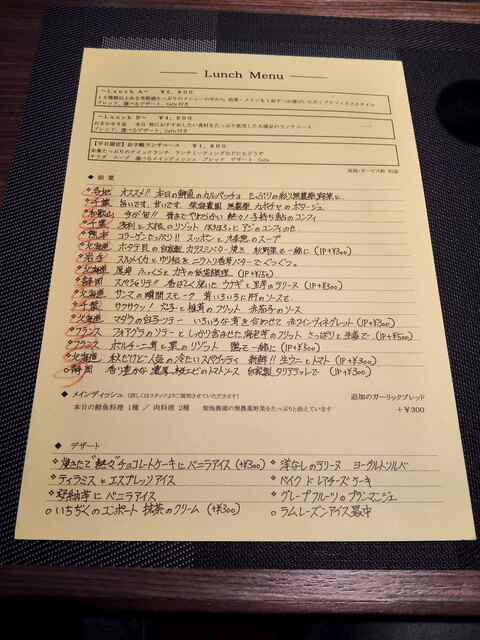 Lunch Menu
~Lunch A~ ¥2,800
15種類以上ある季節感たっぷりのメニューの中から 前菜・メインを1皿ずつお選びいただくプリフィクススタイル
ブレッド、選べるデザート、Cafe付き
~Lunch B~ ¥4,800
おまかせ6皿 本日 特におすすめしたい食材をたっぷり使用した大満足のランチコース
ブレッド、選べるデザート、Cafe付き
【平日限定】お手軽ランチコース ¥1,800
栄養たっぷりのクイックランチ ランチミーティングなどにもどうぞ
サラダ スープ 選べるメインディッシュ ブレッド デザート Cafe
消税・サービス料 別途
◆ 前菜
各地 オススメ!! 本日の鮮魚のカルパッチョ たっぷりの彩り無農薬野菜と
千葉 旨いです、甘いです、柴海農園 無農薬 カボチャのポタージュ
和歌山 手羽
千葉 浅利と大根のリゾット
熊本 コラーゲンたっぷり!! スッポンと九条葱のスープ
北海道 ホタテ貝の自家製カラスミバター焼き 秋野菜と一緒に (1P+¥300)
岩手 スルメイカとゆり根をニラ入り香草バターでぐつぐつ。
北海道 厚岸 ふっくらとカキの低温調理。 (1P+¥150)
静岡 スペシャリテ! 香ばしく焼いたウナギとフォアグラのテリーヌ (1P+¥300)
北海道 サンマの瞬間スモーク 茸いろいろと肝のソースで。
千葉 サクサクッ! 穴子と椎茸のフリット 赤茄子のソース
北海道 マダラの白子ソテー いろいろな茸を合わせて 赤ワインヴィネグレット (1P+¥300)
フランス フォアグラのソテーとしっかり含ませた海老芋のフリット さっぱりと生姜で。(1P+¥500)
フランス ポルチーニ茸と栗のリゾット 鴨と一緒に (1P+¥500)
北海道 秋だけど・人気の冷たいスパゲッティ 新鮮!! 生ウニとトマト (1P+¥300)
静岡 香り豊かな 濃厚 桜エビのトマトソース 自家製タリアテッレで (1P+¥300)
◆ メインディッシュ (詳しくはスタッフよりご説明させていただきます) 追加のガーリックブレッド
本日の鮮魚料理 1種 / 肉料理 2種 柴海農園の無農薬野菜をたっぷりと添えています +¥300
◆ デザート
焼きたて"熱々"チョコレートケーキにバニラアイス (+¥300) 洋なしのテリーヌ ヨーグルトソルベ
ティラミスにエスプレッソアイス ベイクドレアチーズケーキ
安納芋にバニラアイス グレープフルーツのブランマンジェ
いちぢくのコンポート 抹茶のクリーム (+¥300) ラムレーズンアイス最中